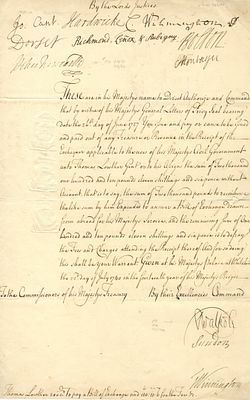 By the Lords Justices
Jo. Cant Hardwicke C Wilmington P
Dorset Richmond, Lenox & Aubigny Bolton
Montagu
These are in his Majestys name to Direct Authorize and Command
that by virtue of his Majestys General Letters of Privy Seal bearing
Date the day of June 1727 You Issue and pay or cause to be Issued
and paid out of any Treasure or Revenue in the Receipt of the
Exchequer applicable to the uses of his Majestys Civil Government
unto Thomas Lowther Esqr or to his Assigns the sum of
one hundred and ten pounds eleven shillings and six pence without
Account that is to say, the sum of Two thousand pounds to reimburse
the like sum by him Expended to answer a Bill of Exchange Drawn
from abroad for his Majestys Service and the remaining sum of One
hundred and ten pounds eleven shillings and six pence is to defray
the Fees and Charges attending the Receipt thereof And for so doing
this shall be your Warrant Given at his Majestys Palace at Whitehall
the day of July 1740 in the fourteenth year of his Majestys Reign
To the Commissioners of his Majestys Treasury By their Excellencies Command
R Walpole
Sundon
Winnington
Thomas Lowther to pay a Bill of Exchange and for the Fees